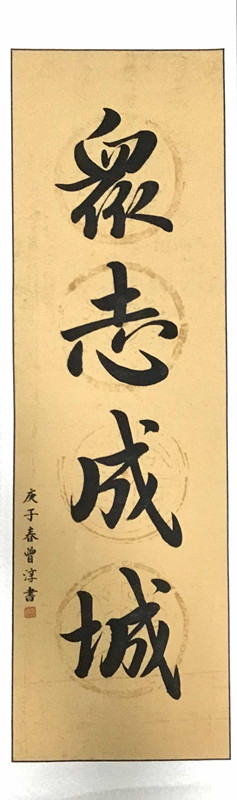 眾志成城
庚子春曾淳書